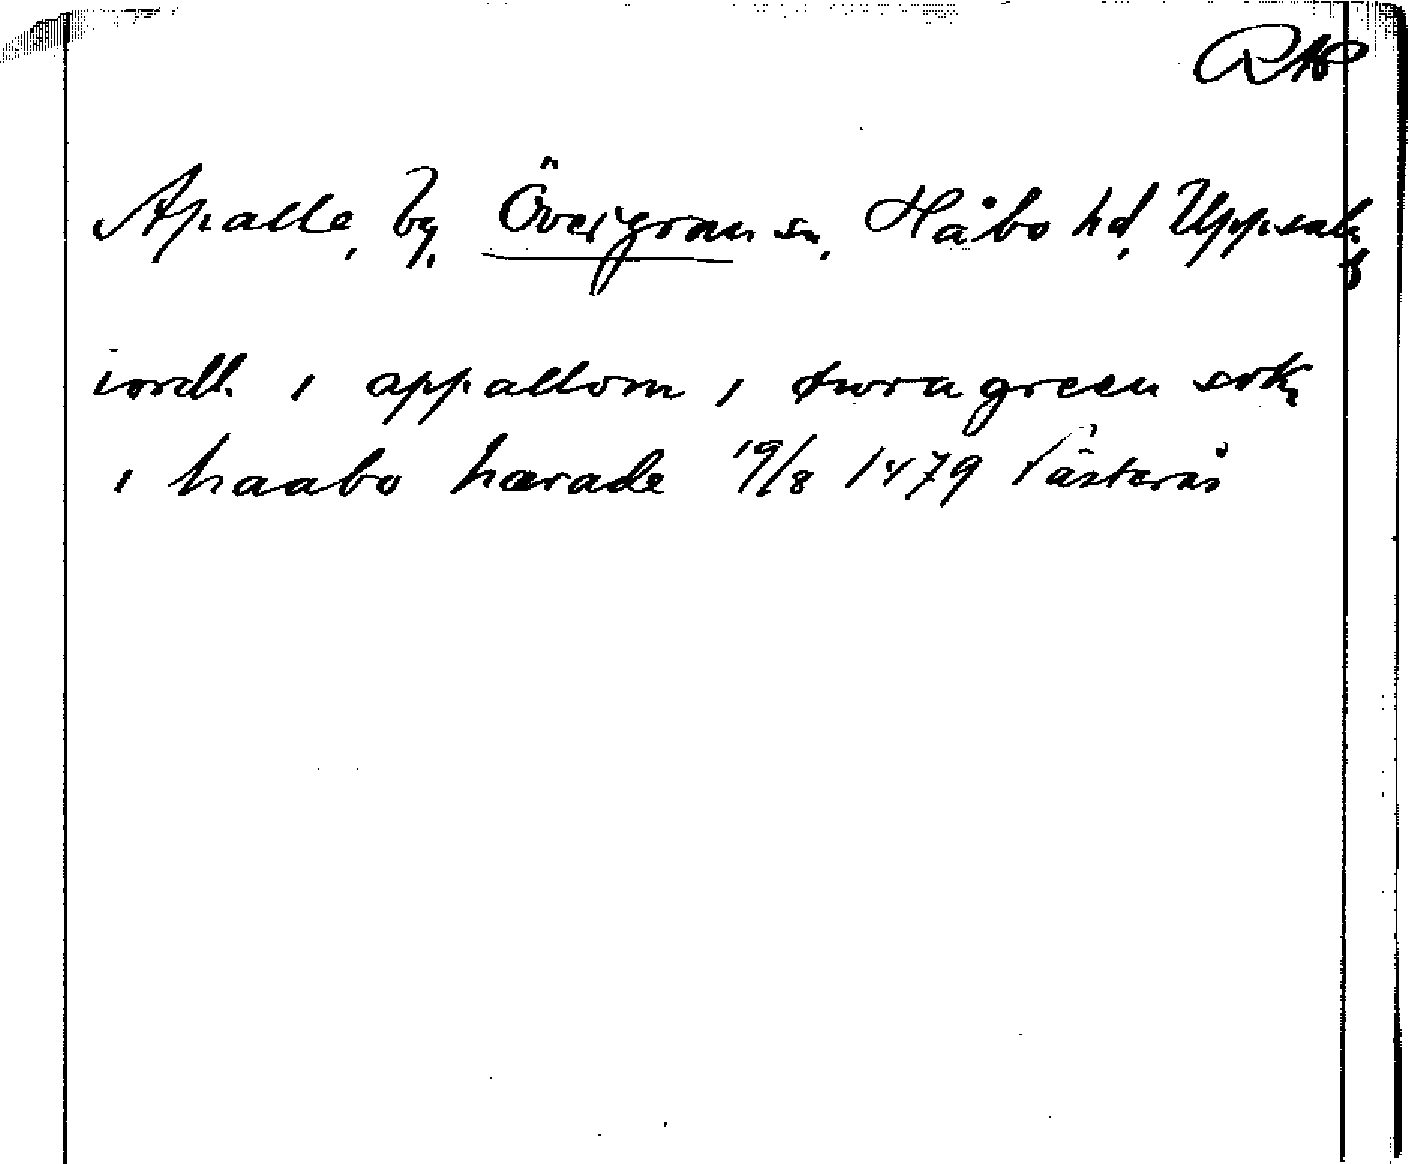 RAP
Apalle, by, Övergran sn, Håbo hd, Uppsala
l
iordh i appallom i øwragreen sokn
i haabo hærade 19/8 1479 Västerås